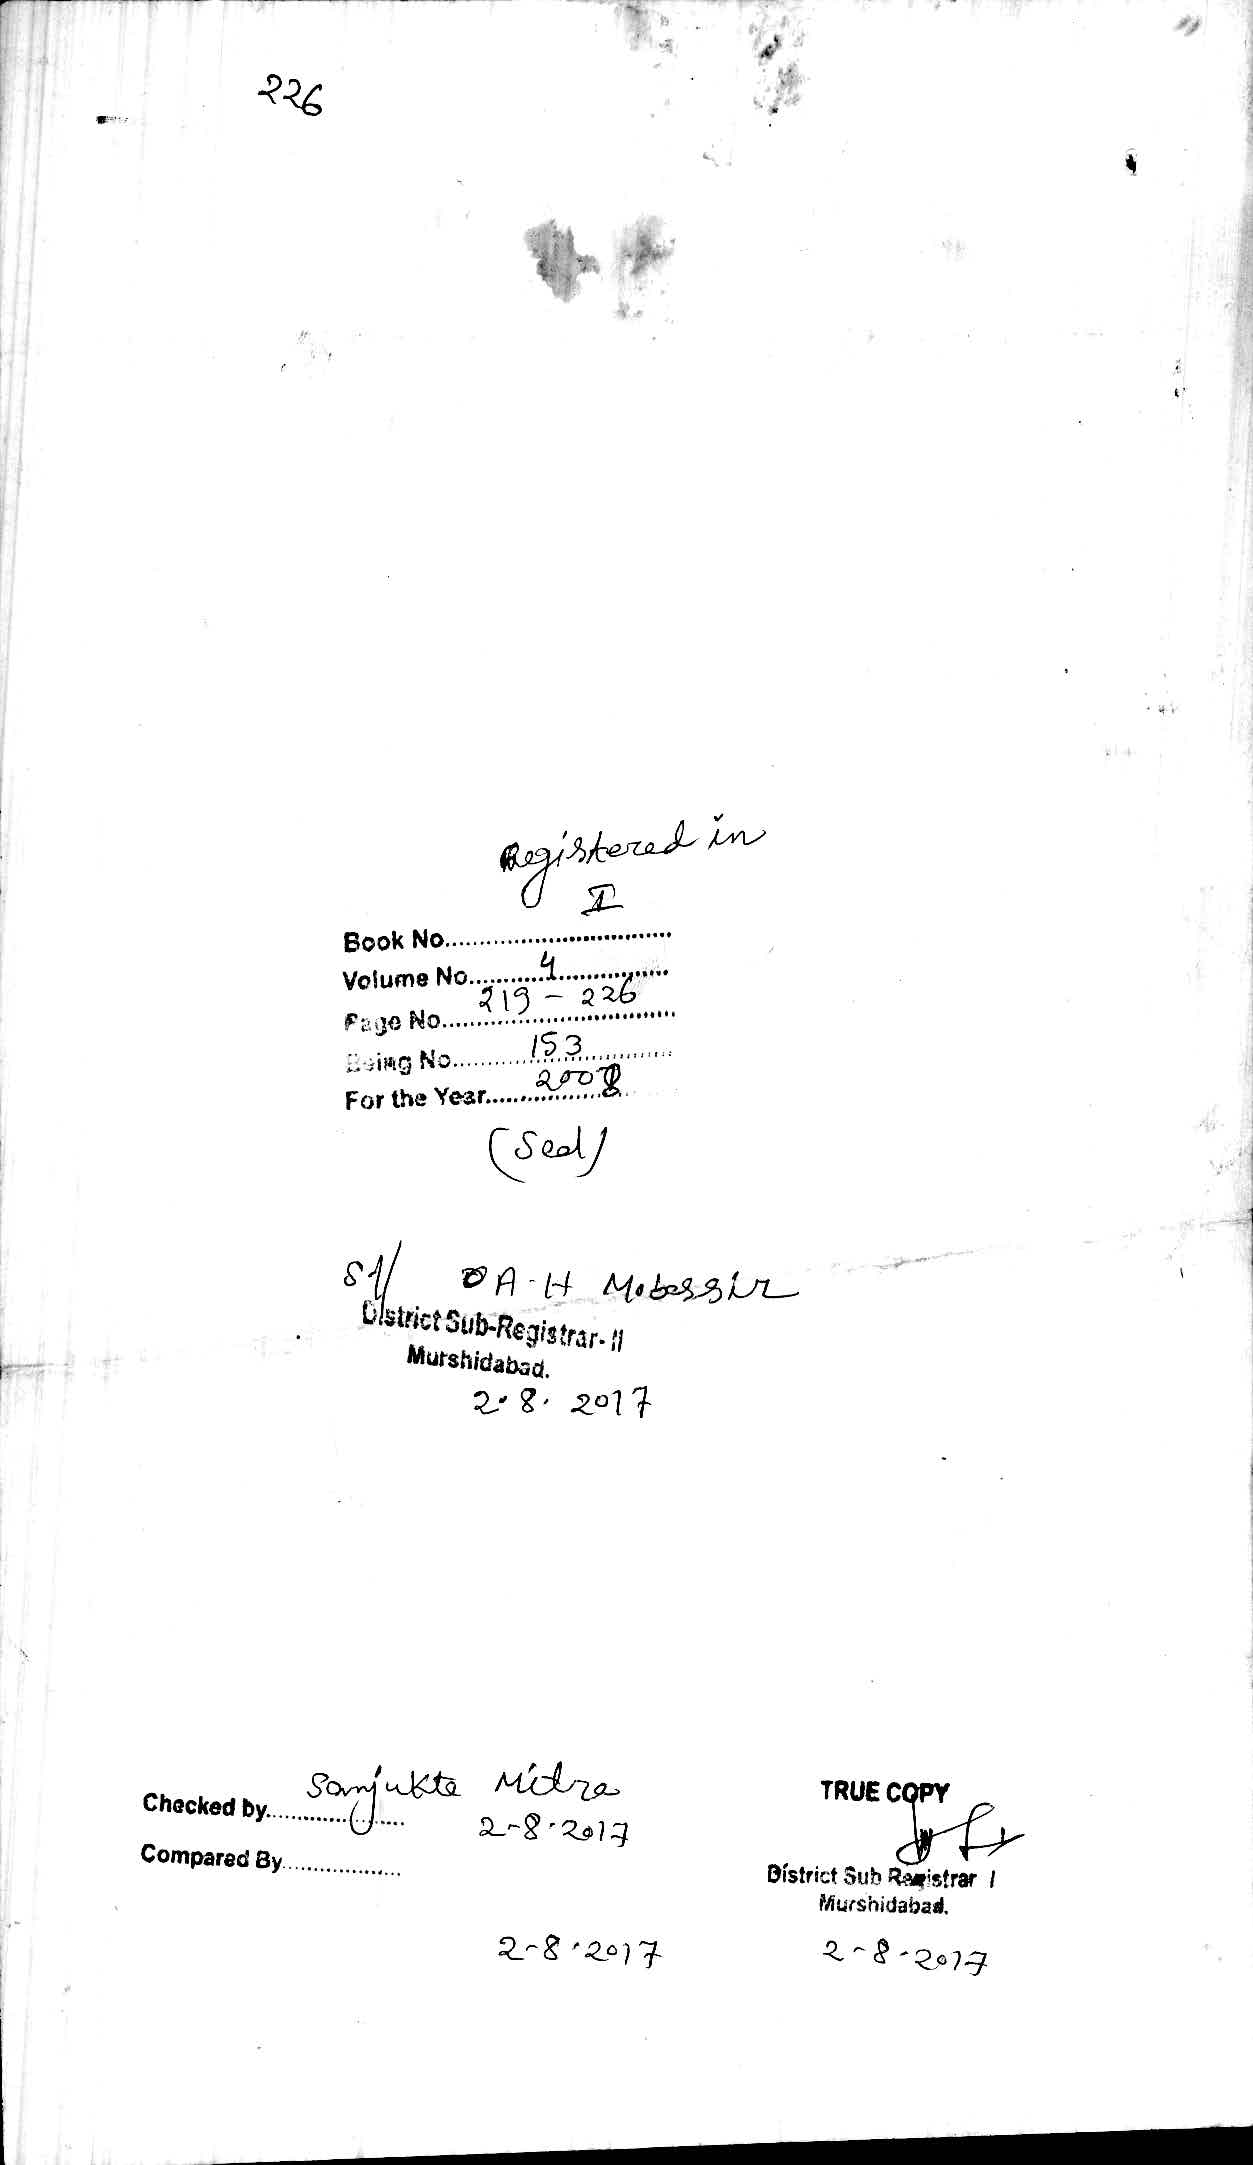 226
Registered in
I
Book No..................................
Volume No...........4................
219 - 226
Page No..................................
Being No...........153................
For the Year........2008............
(Seal)
Sd/ A. H Mobassir
District Sub-Registrar- II
Murshidabad.
2.8. 2017
Sanjukta Mitra
Checked by....................
2-8.2017
Compared By..................
TRUE COPY
District Sub Registrar I
Murshidabad.
2-8.2017
2-8.2017